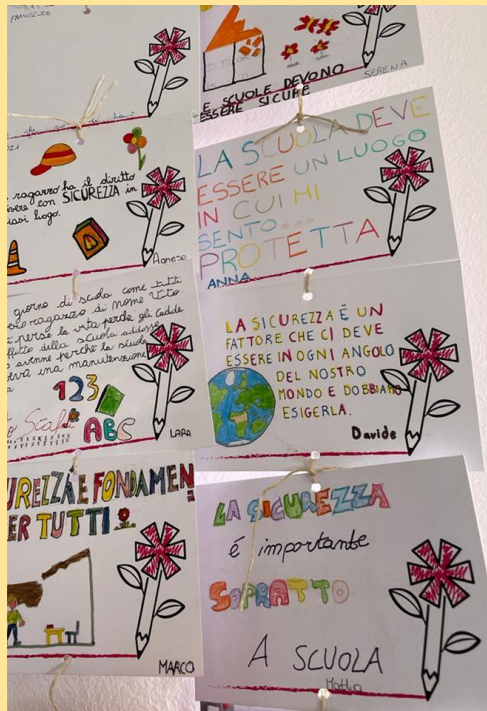 FRANCESCO
LE SCUOLE DEVONO
ESSERE SICURE
SERENA
ragazzo ha il diritto
vivere con SICUREZZA in
luogo.
Agnese
LA SCUOLA DEVE
ESSERE UN LUOGO
IN CUI MI
SENTO...
PROTETTA
ANNA
giorno di scuola come tutti
ragazzo di nome Vito
perse la vita perché gli cadde
della scuola addosso
avvenne perché la scuola
una manutenzione
123
Scafi
ABC
LARA
LA SICUREZZA É UN
FATTORE CHE CI DEVE
ESSERE IN OGNI ANGOLO
DEL NOSTRO
MONDO E DOBBIAMO
ESIGERLA.
Davide
UREZZA É FONDAMEN
ER TUTTI
MARCO
LA SICUREZZA
é importante
SOPRATTO
A SCUOLA
Mattia